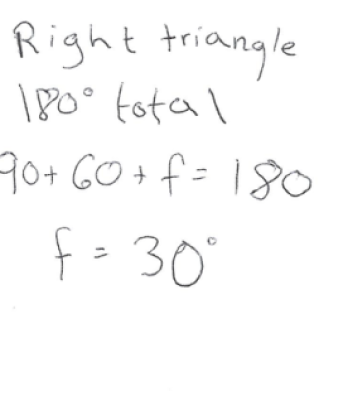 Right triangle
180° total
90+ 60 + f = 180
f = 30°